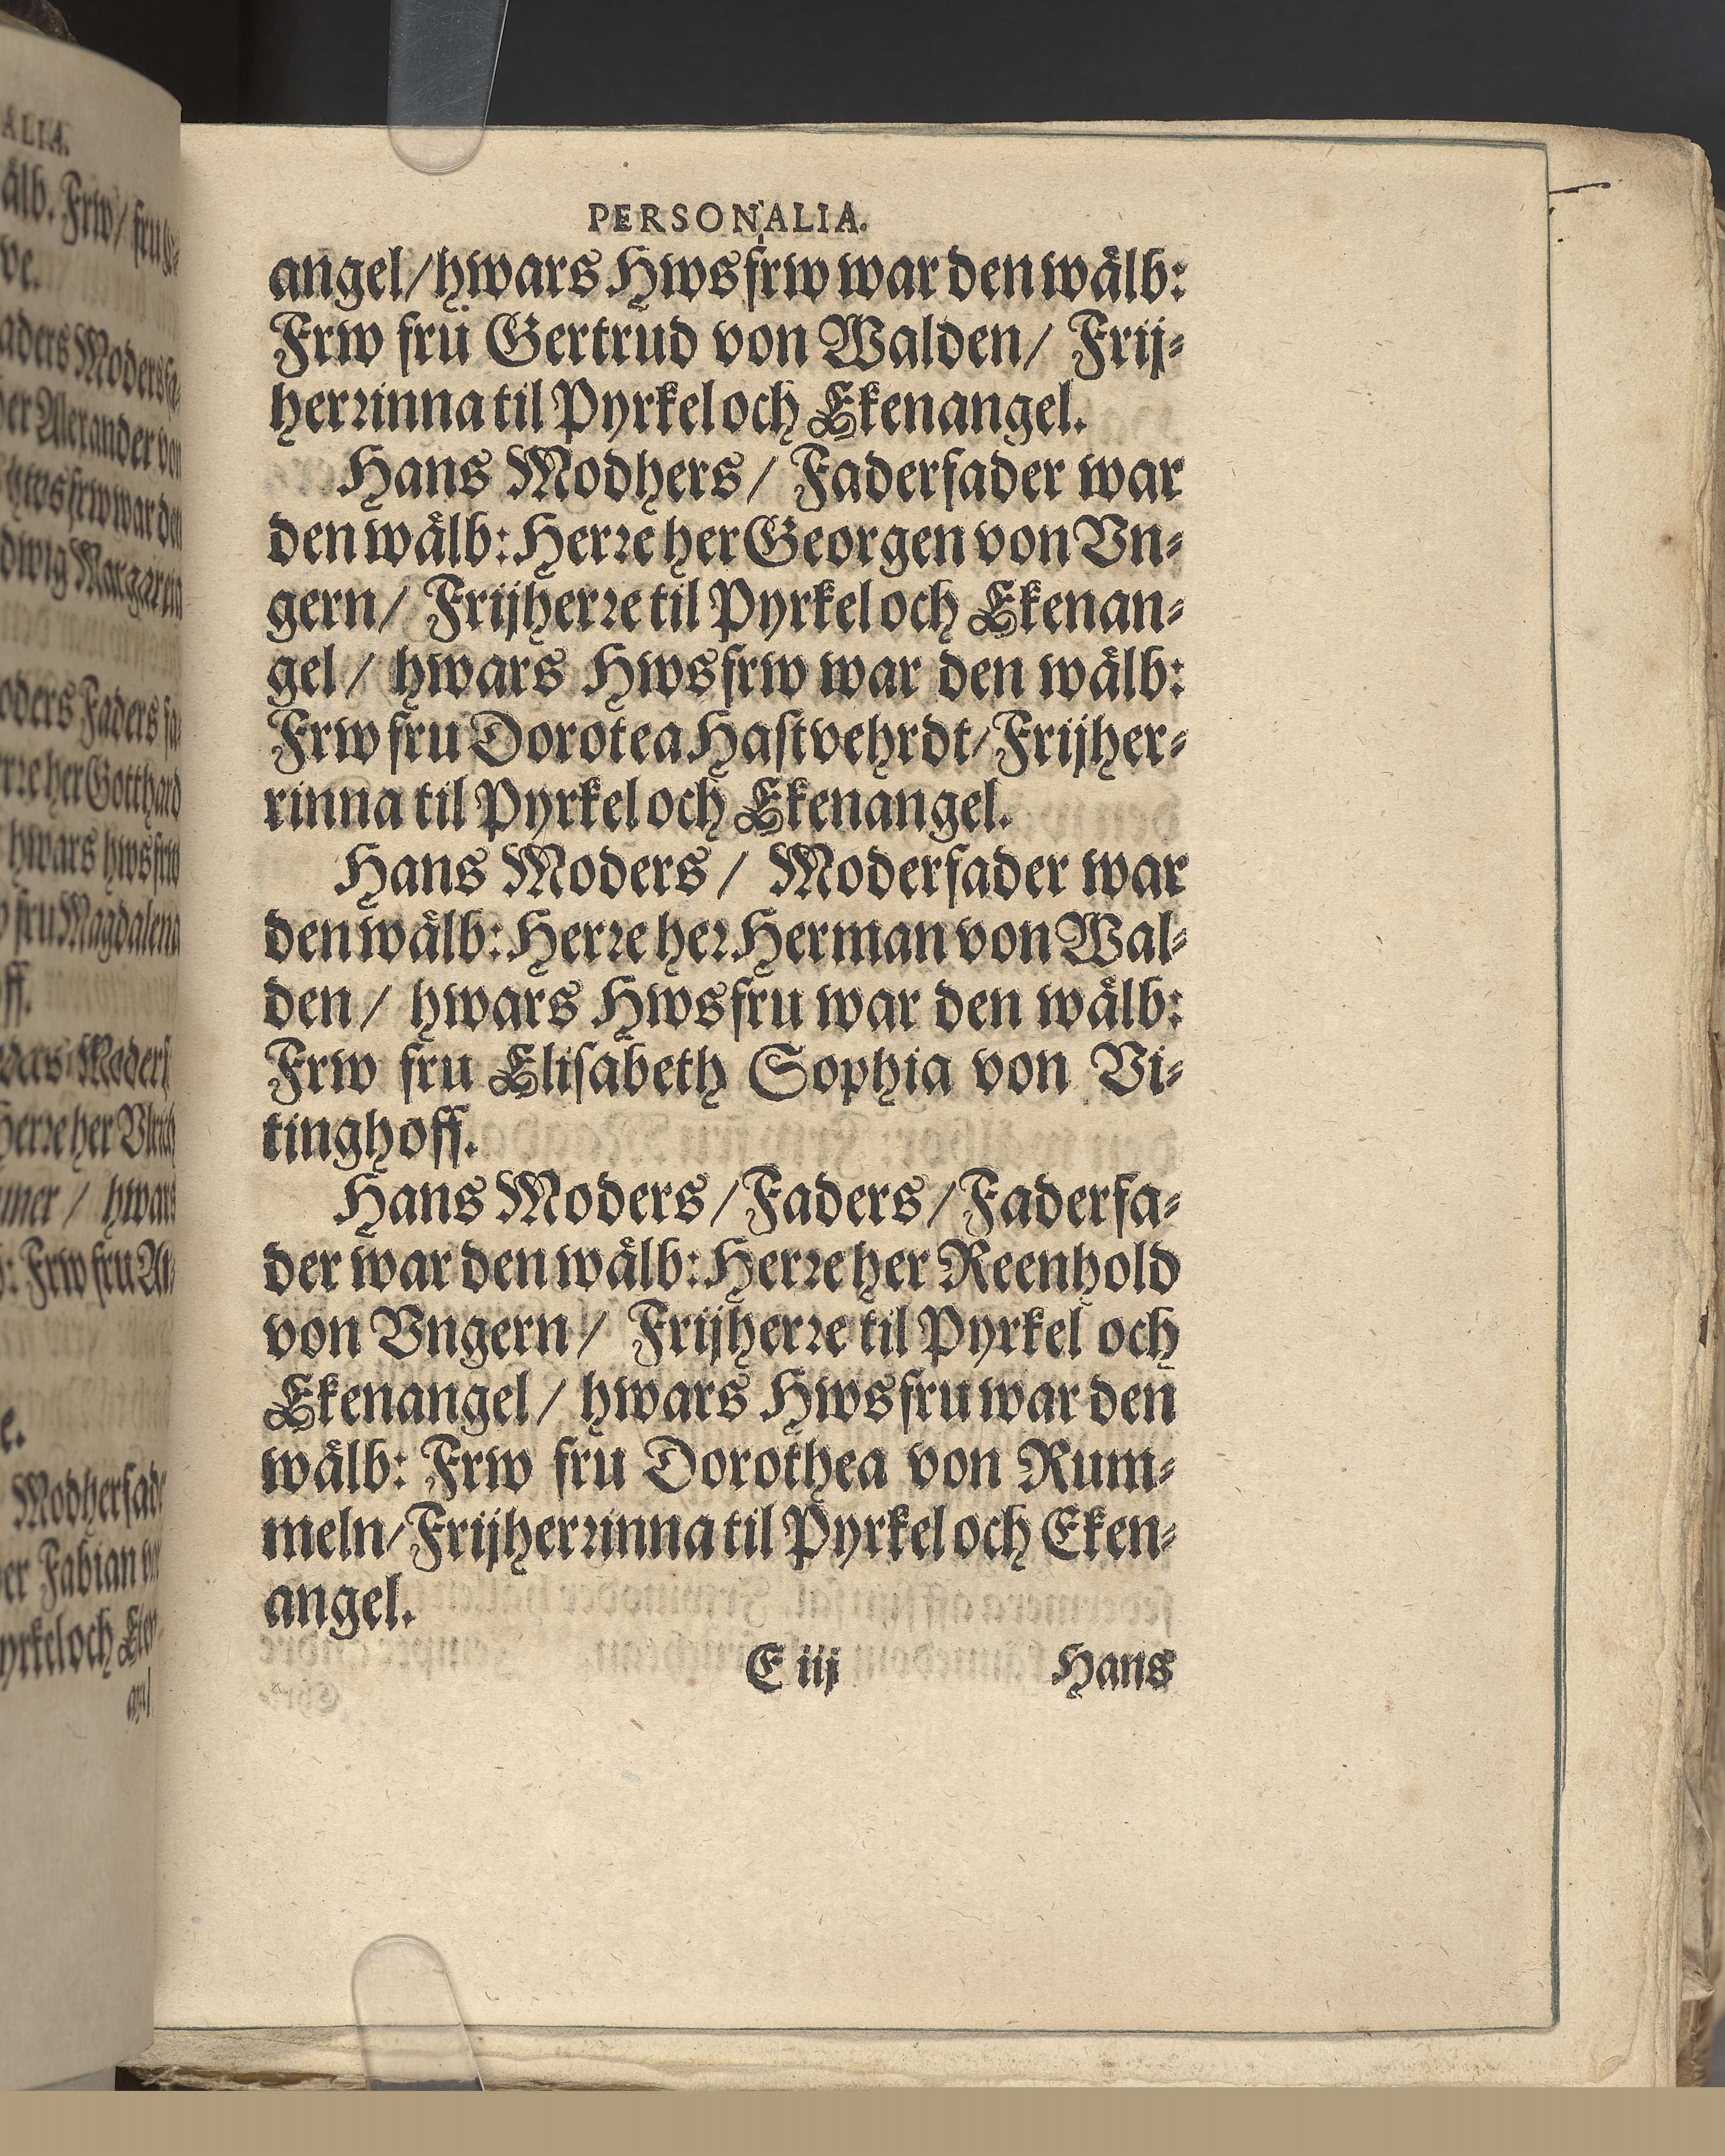 PERSONALIA.
angel/hwars Hwsfrw war den wålb:
Frw frü Gertrud von Walden/ Frij-
herrinna til Pyrkel och Ekenangel.
Hans Modhers/ Faderfader war
den wålb: Herre her Georgen von Vn-
gern/ Frijherre til Pyrkel och Ekenan-
gel/ hwars Hwsfrw war den wålb:
Frw fru Dorotea Hastvehrdt/Frijher-
rinna til Pyrkel och Ekenangel.
Hans Moders/ Moderfader war
den wålb: Herre her Herman von Wal-
den/ hwars Hwsfru war den wålb:
Frw fru Elisabeth Sophia von Vi-
tinghoff.
Hans Moders/Faders/Faderfa-
der war den wålb: Herre her Reenhold
von Vngern/ Frijherre til Pyrkel och
Ekenangel/ hwars Hwsfru war den
wålb: Frw fru Dorothea von Rum-
meln/Frijherrinna til Pyrkel och Eken-
angel.
E iij Hans